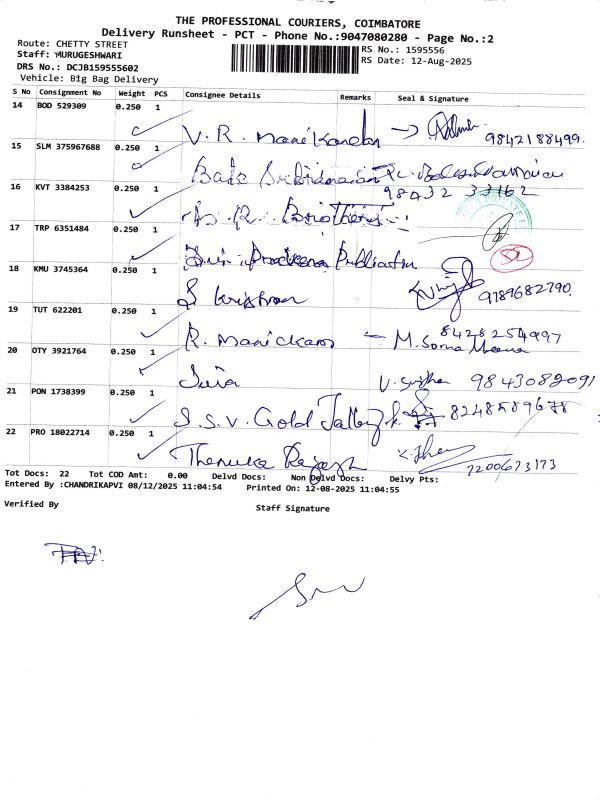 THE PROFESSIONAL COURIERS, COIMBATORE
Delivery Runsheet - PCT - Phone No.:9047080280 - Page No.:2
Route: CHETTY STREET
RS No.: 1595556
Staff: MURUGESHWARI
RS Date: 12-Aug-2025
DRS No.: DCJB159555602
Vehicle: Big Bag Delivery
S No Consignment No Weight PCS Consignee Details Remarks Seal & Signature
14 BOD 529309 0.250 1
V. R. Manikandan 9842188499
15 SLM 375967688 0.250 1
Bala
98432 33162
16 KVT 3384253 0.250 1
R. Brothers
17 TRP 6351484 0.250 1
Publication
18 KMU 3745364 0.250 1
S Krishnan 9789682790
19 TUT 622201 0.250 1
8428254997
R. Manickam - M.
20 OTY 3921764 0.250 1
Siva 9843082091
21 PON 1738399 0.250 1
S.S.V. Gold
22 PRO 18022714 0.250 1
Thenuka Rajesh 7200673173
Tot Docs: 22 Tot COD Amt: 0.00 Delvd Docs: Non Delvd Docs: Delvy Pts:
Entered By :CHANDRIKAPVI 08/12/2025 11:04:54 Printed On: 12-08-2025 11:04:55
Verified By Staff Signature